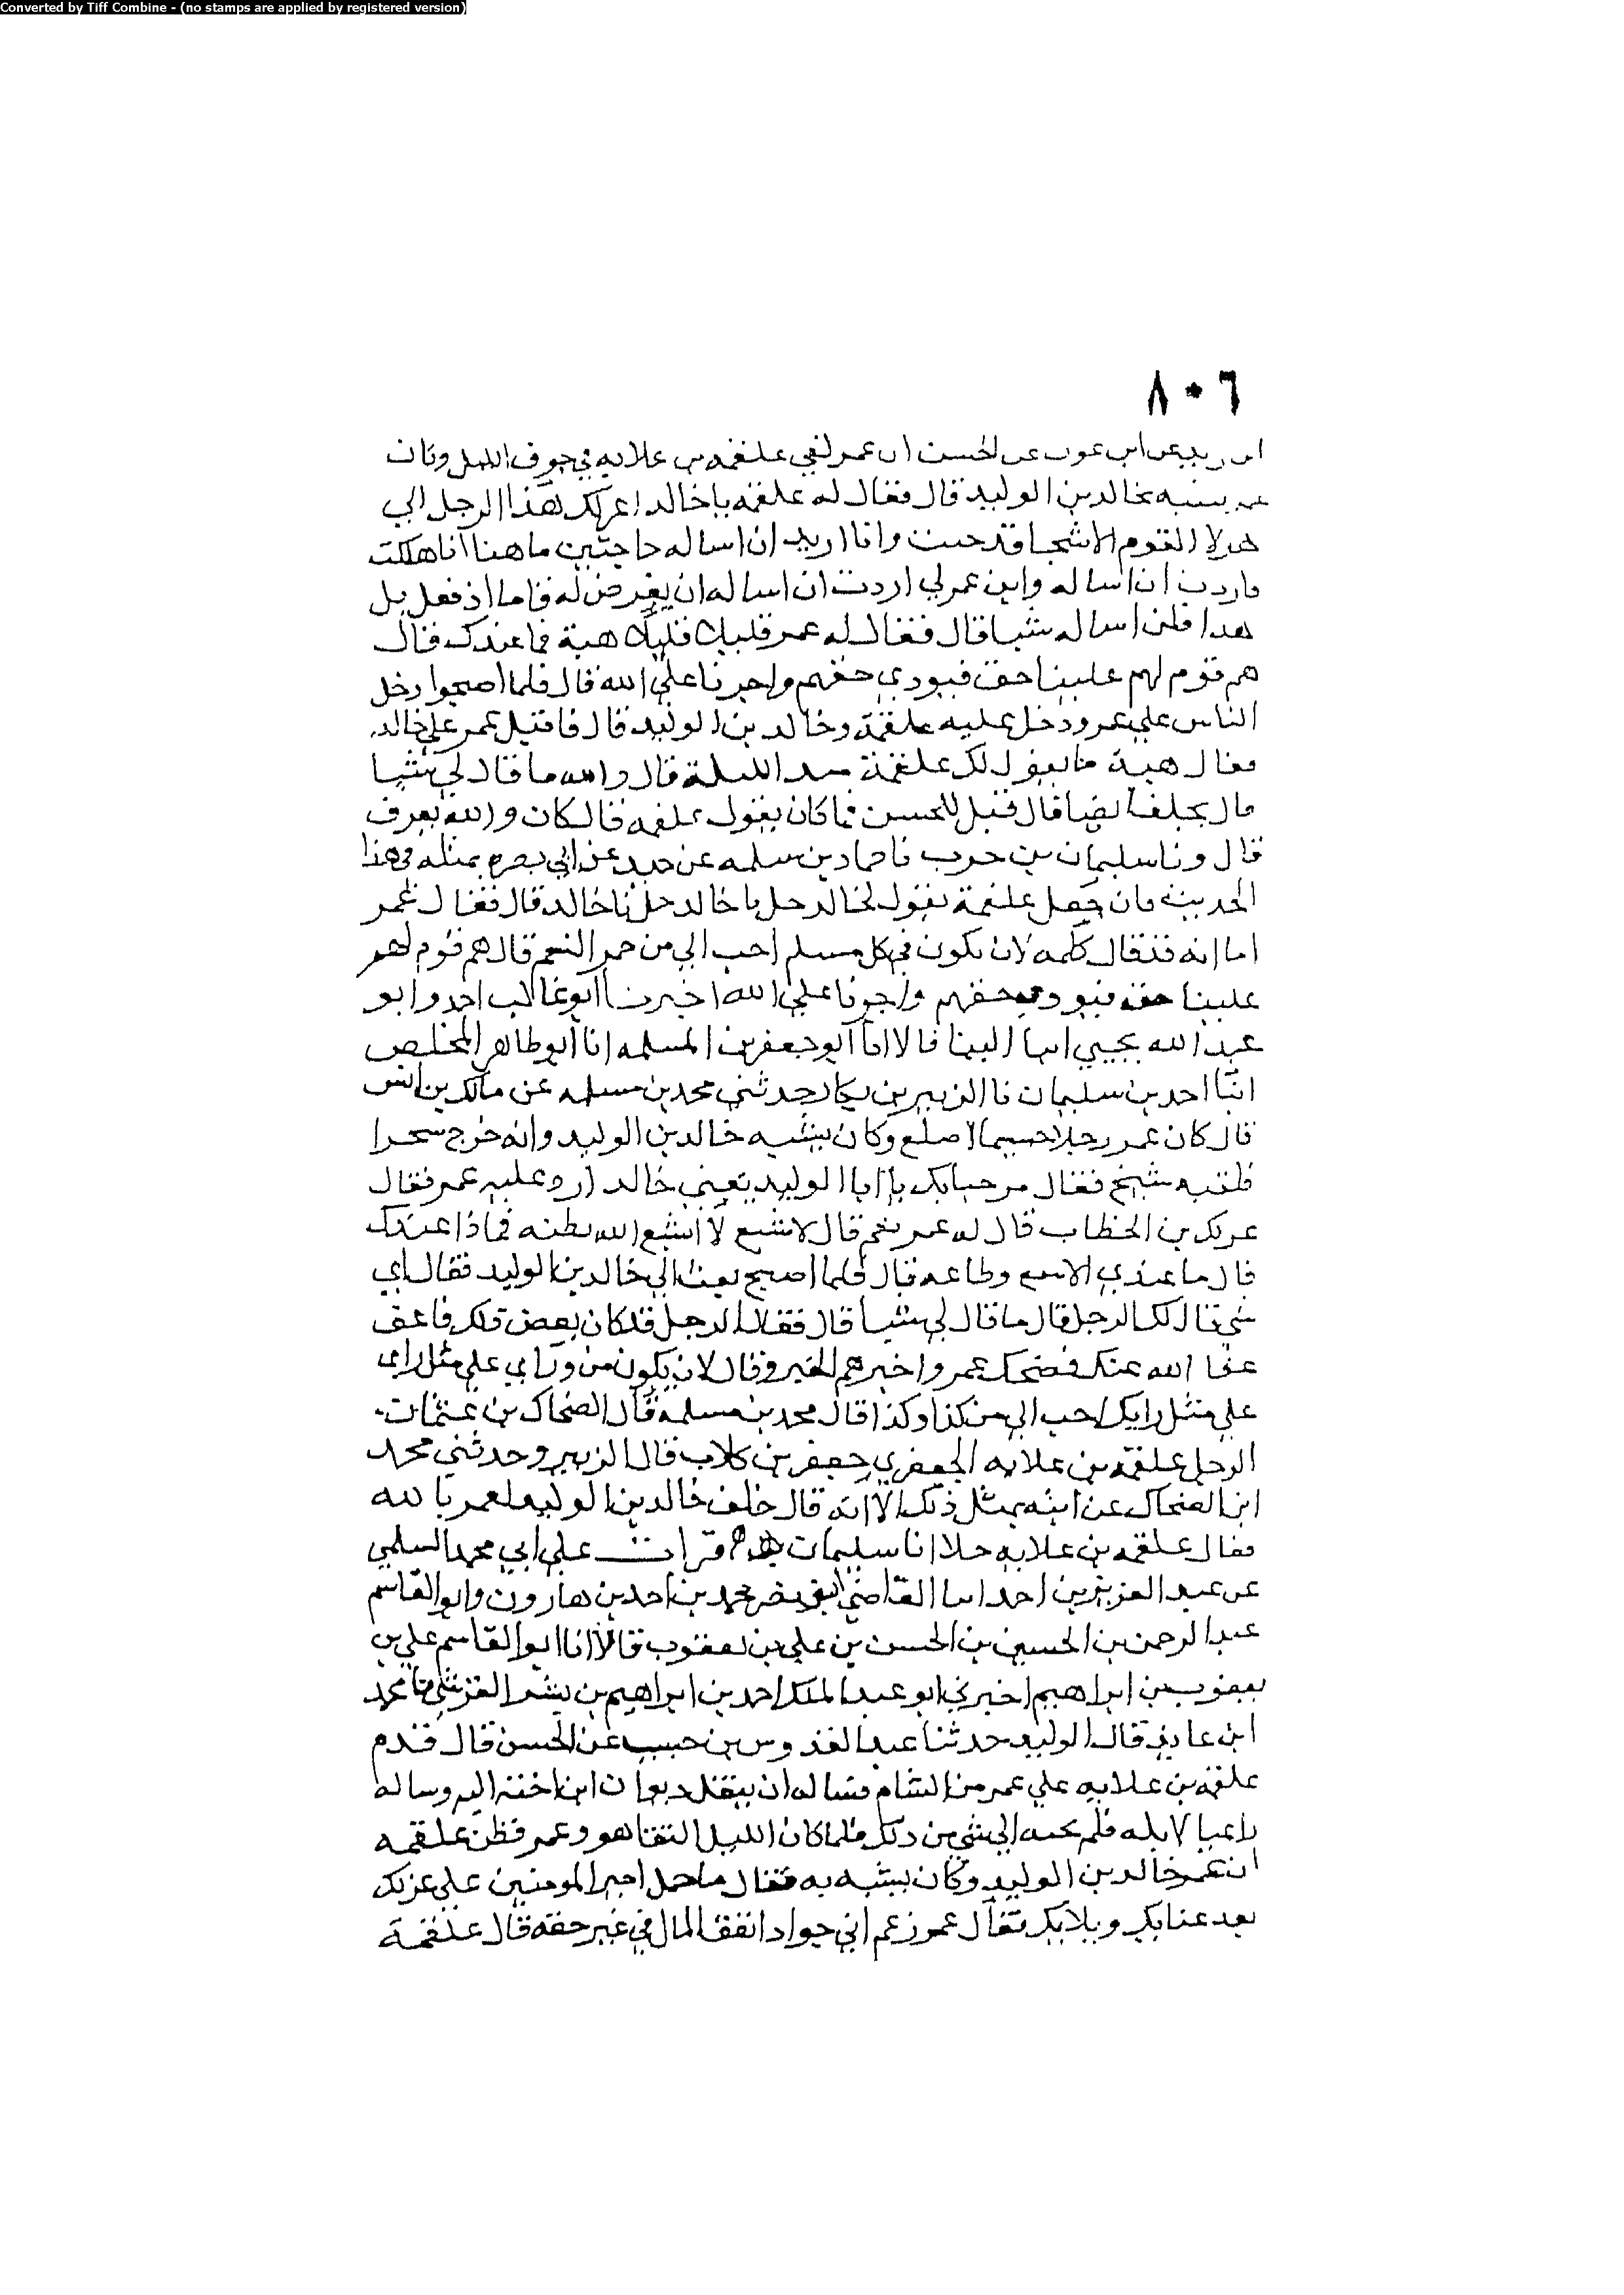 Converted by Tiff Combine - (no stamps are applied by registered version)
٨٠٦
ابن زيد عن ابن عون عن الحسن ان عمر لقي علقمه بن علاثه في جوف الليل وكان
عمر يشبه بخالد بن الوليد قال فقال له علقمه يا خالد اعزلك هذا الرجل ابي
هولا القوم الا شحا وقد جيت وانا اريد ان اساله حاجتين ما هنا انا هلكت
فاردت ان اساله وابن عم لي اردت ان اساله ان يفرض له فاما اذ فعل بك
هذا فلن اساله شيا قال فقال له عمر قليلا قليلا هية فما عندك فقال
هم قوم لهم علينا حق فيودي حقهم واجرنا علي الله قال فلما اصبحوا دخل
الناس علي عمر ودخل عليه علقمة وخالد بن الوليد قال فاقبل عمر علي خالد
فقال هية ما يقول لك علقمة منذ الليلة قال والله ما قال لي شيا
قال يحلف ايضا قال قيل للحسن فما كان يقول علقمه قال كان والله يعرف
قال ونا سليمان بن حرب نا حماد بن سلمه عن حميد عن ابي نضره بمثله في هذا
الحديث قال فجعل علقمة يقول لخالد حل يا خالد حل يا خالد قال فقال عمر
اما انه قد قال كلمه لان تكون في كل مسلم احب الي من حمر النعم قال هم قوم لهم
علينا حق فيودي حقهم واجرنا علي الله اخبرنا ابو غالب احمد وابو
عبد الله يحيي ابنا البنا قالا انا ابو جعفر بن المسلمه انا ابو طاهر المخلص
انبا احمد بن سليمان نا الزبير بن بكار حدثني محمد بن مسلمه عن مالك بن انس
قال كان عمر رجلا جسيما اصلع وكان يشبه خالد بن الوليد وانه خرج سحرا
فلقيه شيخ فقال مرحبا بك يا ابا الوليد يعني خالد رد عليه عمر فقال
عزلك بن الخطاب قال له عمر نعم قال لا يشبع لا اشبع الله بطنه فماذا عندك
قال ما عندي الا سمع وطاعه قال فلما اصبح بعث الي خالد بن الوليد فقال اي
شي قال لك الرجل قال ما قال لي شيا قال فقال الرجل قد كان بعض ذلك فاعف
عفا الله عنك فضحك عمر واخبرهم الخبر وقال لان يكون من ورابي علي مثل راي
علي مثل رايك احب الي من كذا وكذا قال محمد بن مسلمة قال الضحاك بن عثمان
الرجل علقمه بن علاثه الجعفري جعفر بن كلاب قال الزبير وحدثني محمد
ابن الضحاك عن ابيه بمثل ذلك الا انه قال حلف خالد بن الوليد لعمر بالله
فقال علقمه بن علاثه حلا ابا سليمان قرات علي ابي محمد السلمي
عن عبد العزيز بن احمد انبا القاضي ابو نصر محمد بن احمد بن هارون وابو القاسم
عبد الرحمن بن الحسين بن الحسن بن علي بن يعقوب قالا انا ابو القاسم علي بن
يعقوب بن ابراهيم اخبرني ابو عبد الملك احمد بن ابراهيم بن بشر القرشي نا محمد
ابن عايذ قال الوليد حدثنا عبد القدوس بن حبيب عن الحسن قال قدم
علقمه بن علاثه علي عمر من الشام فساله ان ينقل ديوان ابن اخته اليه وساله
راعيا لابله فلم يجبه الي شي من ذلك فلما كان الليل التقا هو وعمر فظن علقمه
ان عمر خالد بن الوليد وكان يشبه به فقال ما حمل امير المومنين علي عزلك
بعد عنايك وبلايك فقال عمر زعم اني جواد انفق المال في غير حقه قال علقمة